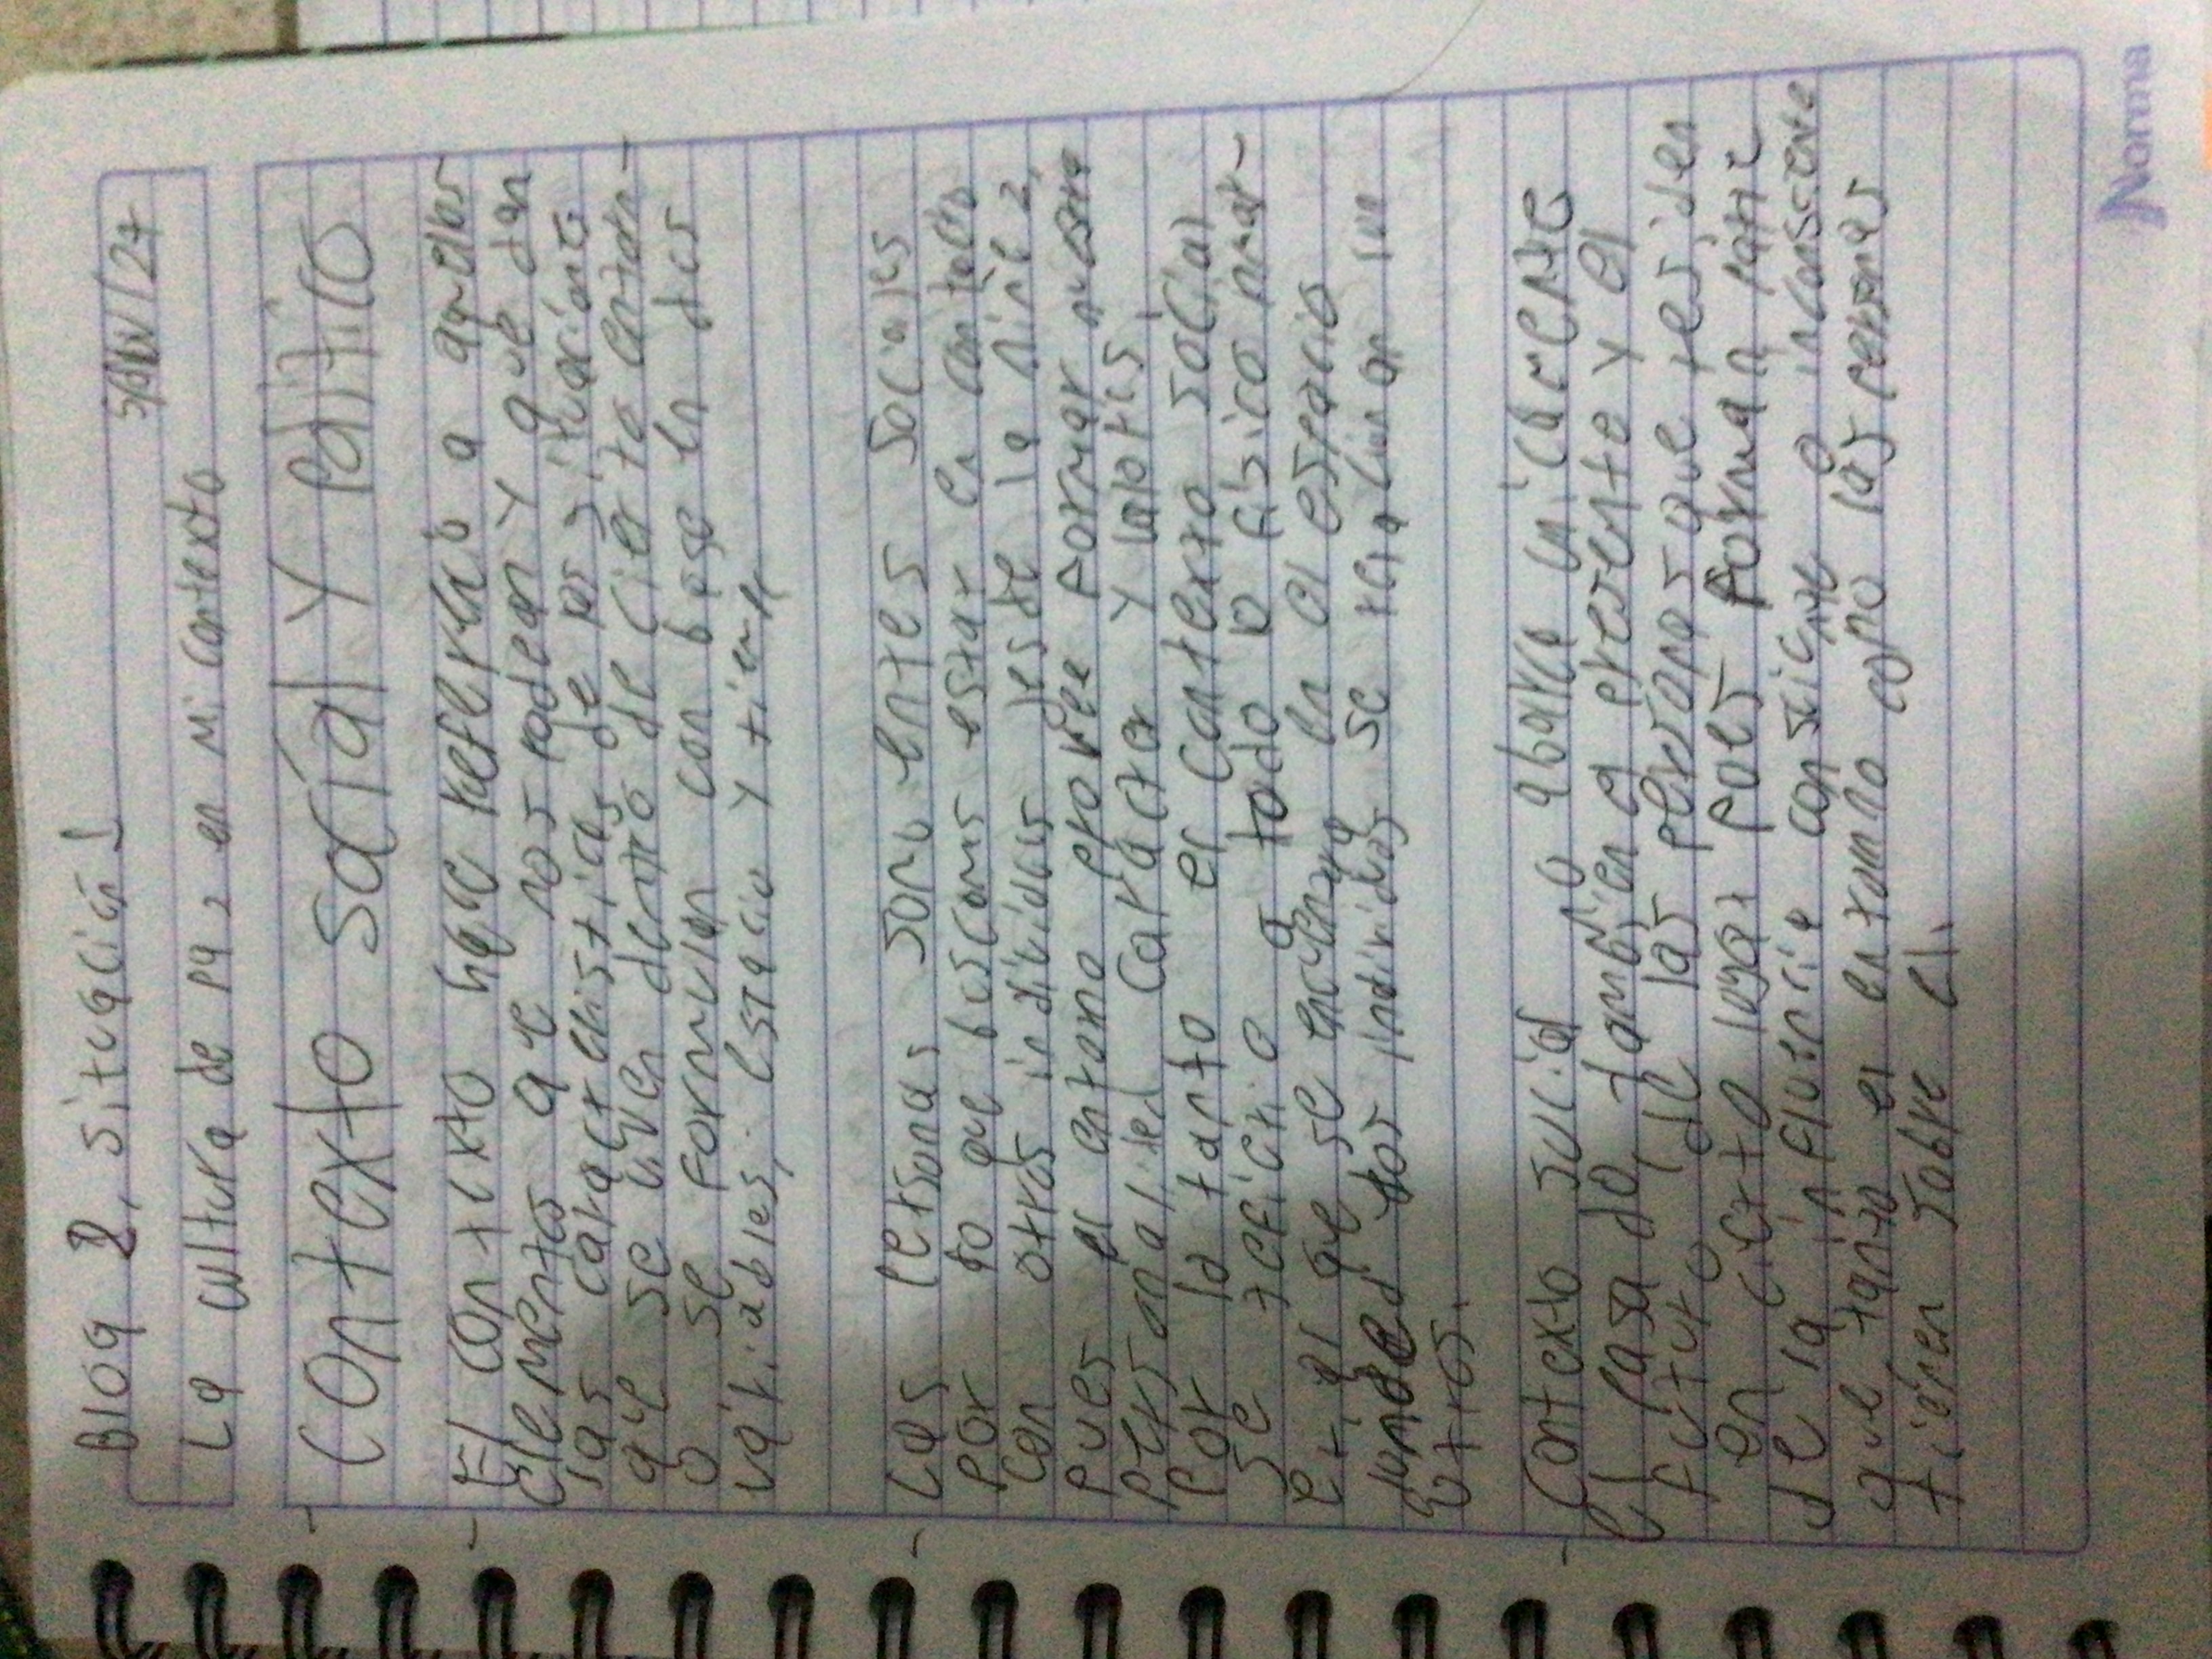 Bloq 2, situación 1
5/IV/24
La cultura de paz en mi contexto
Contexto social y politico
El contexto hace referencia a aquellos
elementos que nos rodean y que dan
las caracteristicas de las situaciones
que se viven dentro de cierto entor-
o se formulan con base en dos
variables, espacio y tiempo
Las personas somos entes sociales
por lo que buscamos estar en contacto
con otros individuos desde la niñez,
pues el entorno provee formar nuestra
personalidad caracter y valores,
por lo tanto el contexto social
se refiere a todo lo físico mat-
erial que se encuentra en el espacio
donde los individuos se relacionan con
otros.
Contexto social no abarca unicamente
el pasado, también el presente y el
futuro de las personas que residen
en cierto lugar pues forman parte
de la influencia consciente o inconsciente
que tanto el entorno como las personas
tienen sobre el.
Norma